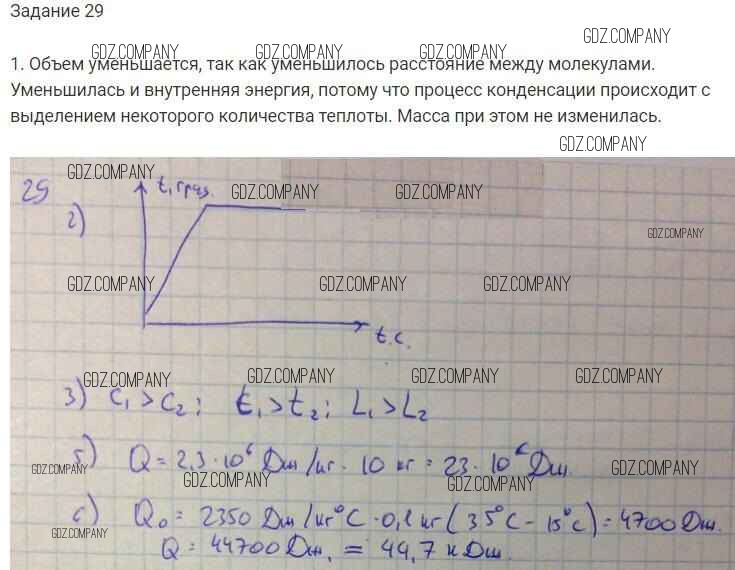 Задание 29
GDZ.COMPANY
GDZ.COMPANY GDZ.COMPANY GDZ.COMPANY
1. Объем уменьшается, так как уменьшилось расстояние между молекулами.
Уменьшилась и внутренняя энергия, потому что процесс конденсации происходит с
выделением некоторого количества теплоты. Масса при этом не изменилась.
GDZ.COMPANY
GDZ.COMPANY
29 t, град. GDZ.COMPANY GDZ.COMPANY
2)
GDZ.COMPANY
GDZ.COMPANY GDZ.COMPANY GDZ.COMPANY
t.с.
GDZ.COMPANY GDZ.COMPANY GDZ.COMPANY GDZ.COMPANY
3) C₁ > C₂; t₁ > t₂; L₁ > L₂
5) Q = 2,3 · 10⁶ Дж/кг · 10 кг = 23 · 10⁶ Дж.
GDZ.COMPANY GDZ.COMPANY GDZ.COMPANY GDZ.COMPANY
с) Q₀ = 2350 Дж/кг°С · 0,1 кг (35°С - 15°С) = 4700 Дж.
GDZ.COMPANY
Q = 44700 Дж. = 44,7 кДж.